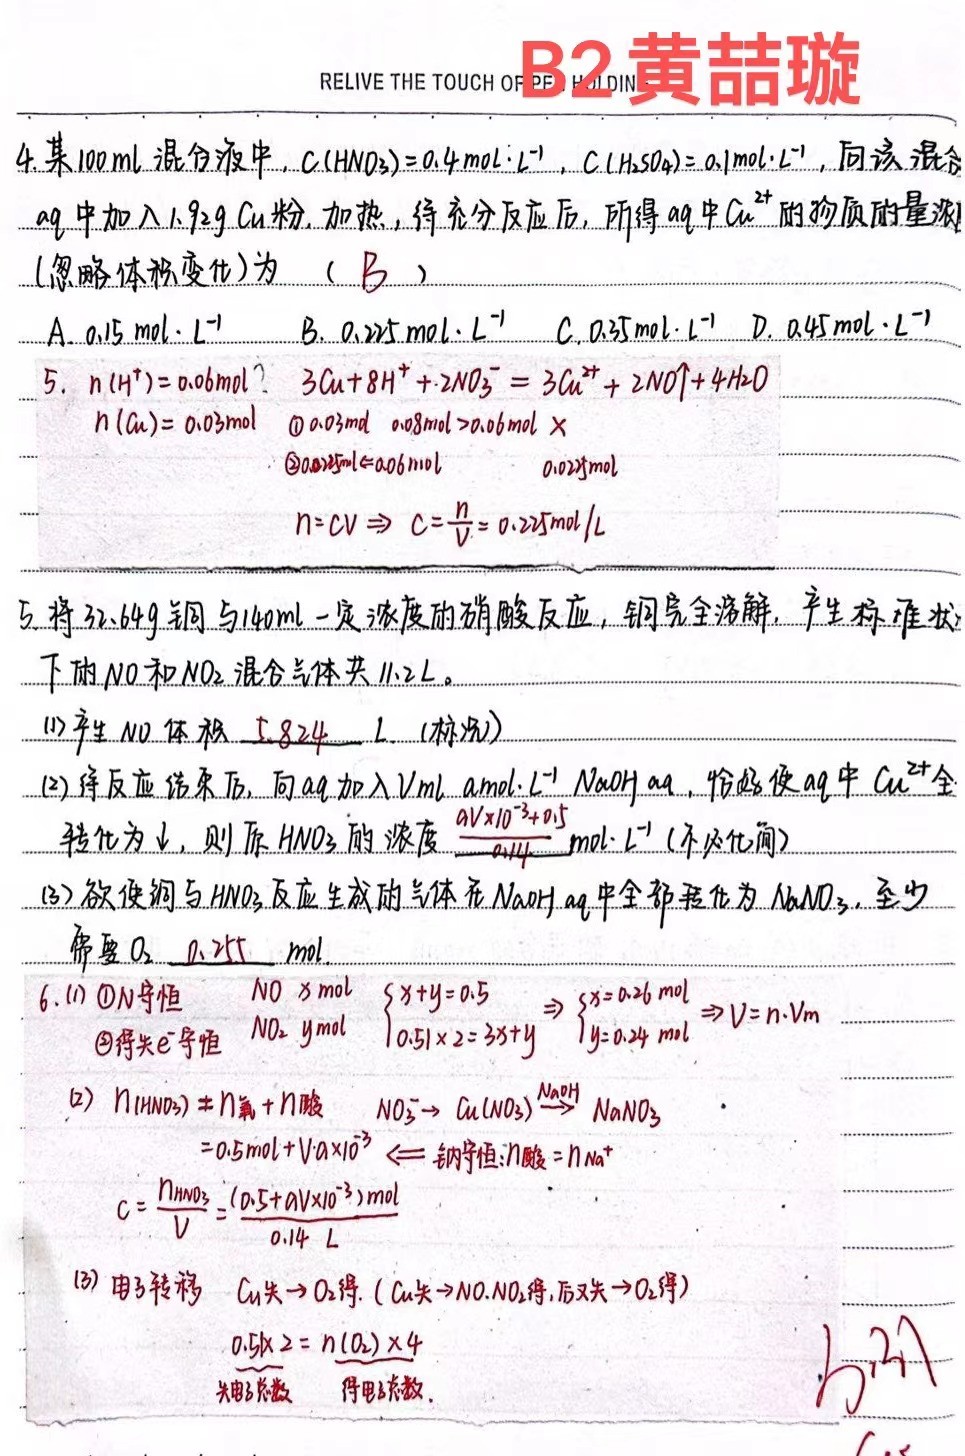 RELIVE THE TOUCH OF PEN HOLDING
B2黄喆璇
4.某100ml混合液中，C(HNO₃)=0.4mol·L⁻¹，C(H₂SO₄)=0.1mol·L⁻¹，向该混合
aq中加入1.92g Cu粉，加热，待充分反应后，所得aq中Cu²⁺的物质的量浓度
(忽略体积变化)为 （ B ）
A. 0.15 mol·L⁻¹ B. 0.225mol·L⁻¹ C. 0.35mol·L⁻¹ D. 0.45mol·L⁻¹
5. n(H⁺)=0.06mol? 3Cu+8H⁺+2NO₃⁻=3Cu²⁺+2NO↑+4H₂O
n(Cu)=0.03mol ①0.03mol 0.08mol>0.06mol ×
②0.0225mol⇐0.06mol 0.0225mol
n=CV ⇒ C=n/V=0.225mol/L
5.将32.64g铜与140ml一定浓度的硝酸反应，铜完全溶解，产生标准状
下的NO和NO₂混合气体共11.2L。
(1)产生NO体积 5.824 L.（标况）
(2)待反应结束后，向aq加入Vml amol·L⁻¹ NaOH aq，恰好使aq中Cu²⁺全
转化为↓，则原HNO₃的浓度 (aV×10⁻³+0.5)/0.14 mol·L⁻¹（不必化简）
(3)欲使铜与HNO₃反应生成的气体在NaOH aq中全部转化为NaNO₃，至少
需要O₂ 0.255 mol.
6.(1) ①N守恒 NO x mol {x+y=0.5 ⇒ {x=0.26 mol ⇒V=n·Vm
②得失e⁻守恒 NO₂ y mol 0.51×2=3x+y y=0.24 mol
(2) n(HNO₃)=n氧+n酸 NO₃⁻→Cu(NO₃) NaOH→ NaNO₃
=0.5mol+V·a×10⁻³ ⇐ 钠守恒:n酸=nNa⁺
C=nHNO₃/V=(0.5+aV×10⁻³)mol/0.14 L
(3) 电子转移 Cu失→O₂得.(Cu失→NO.NO₂得,后又失→O₂得)
0.51×2=n(O₂)×4
失电子总数 得电子总数.